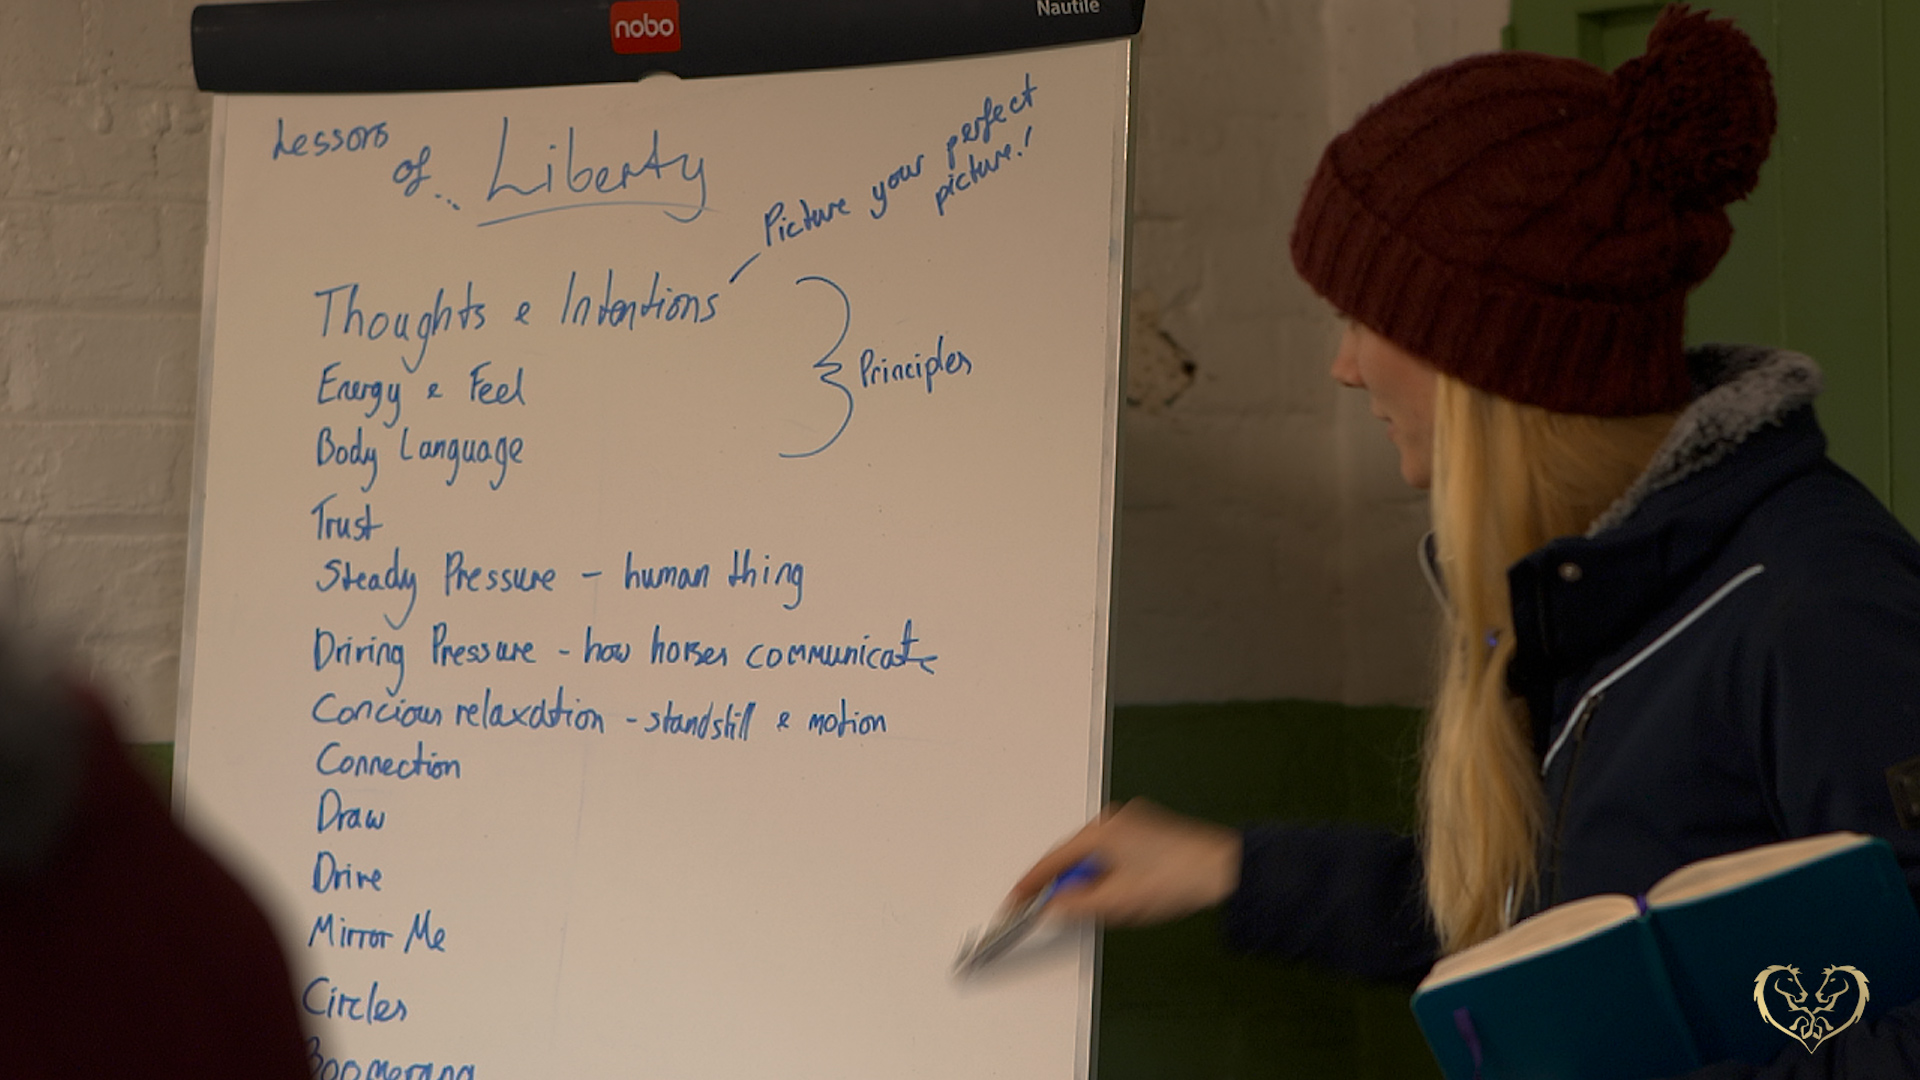 nobo
Nautile
Lessons
of... Liberty
Picture your perfect
picture!
Thoughts & Intentions
Energy & Feel
Principles
Body Language
Trust
Steady Pressure - human thing
Driving Pressure - how horses communicate
Concious relaxation - standstill & motion
Connection
Draw
Drive
Mirror Me
Circles
Boomerang